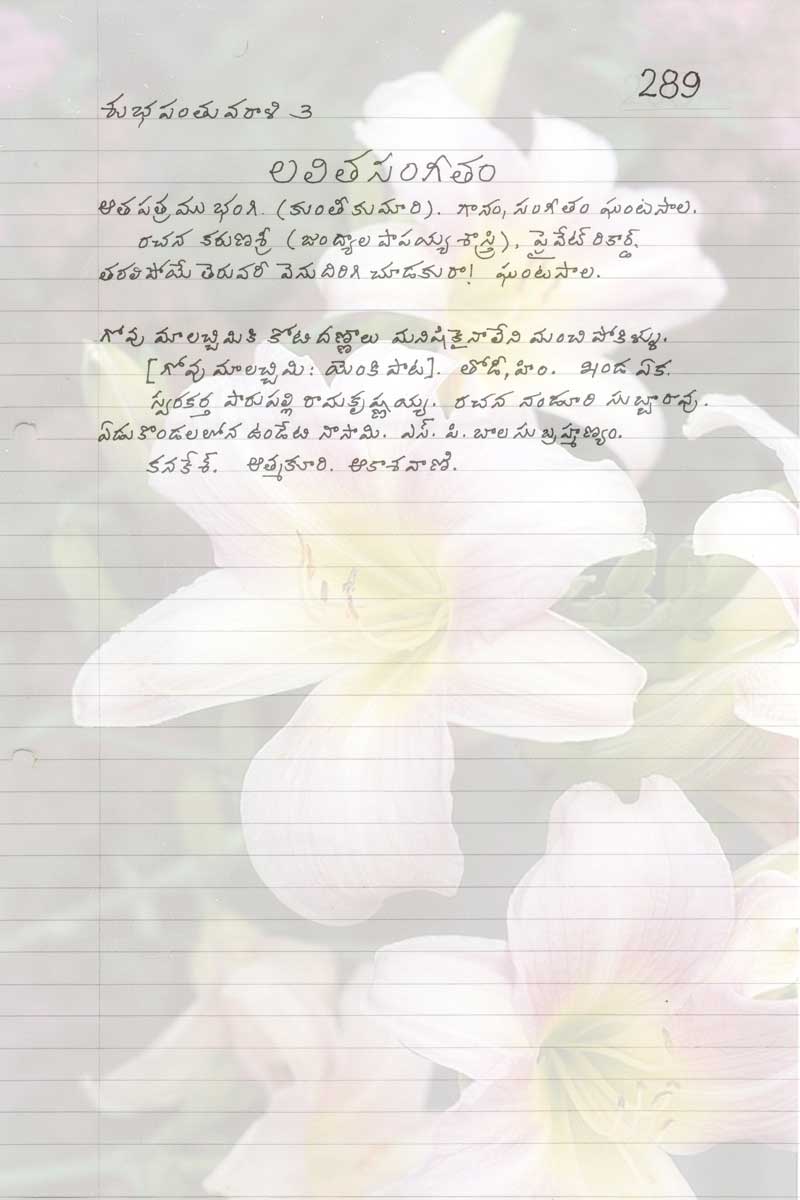 289
శుభపంతువరాళి 3
లలితసంగీతం
ఆతపత్రము భంగి. (కుంతీకుమారి). గానం, సంగీతం ఘంటసాల.
రచన కరుణశ్రీ (జంధ్యాల పాపయ్య శాస్త్రి), ప్రైవేట్ రికార్డ్.
తరలిపోయే తెరువరీ వెనుదిరిగి చూడకురా! ఘంటసాల.
గోవు మాలచ్చిమికి కోటి దణ్ణాలు మనిషికైనాలేని మంచి పోకిళ్ళు.
[గోవు మాలచ్చిమి: యెంకి పాట]. తోడీ, హిం. ఖండ ఏక.
స్వరకర్త పారుపల్లి రామకృష్ణయ్య. రచన నండూరి సుబ్బారావు.
ఏడుకొండలలోన ఉండేటి నాసామి. ఎస్. పి. బాలసుబ్రహ్మణ్యం.
కనకేశ్. ఆత్మకూరి. ఆకాశవాణి.